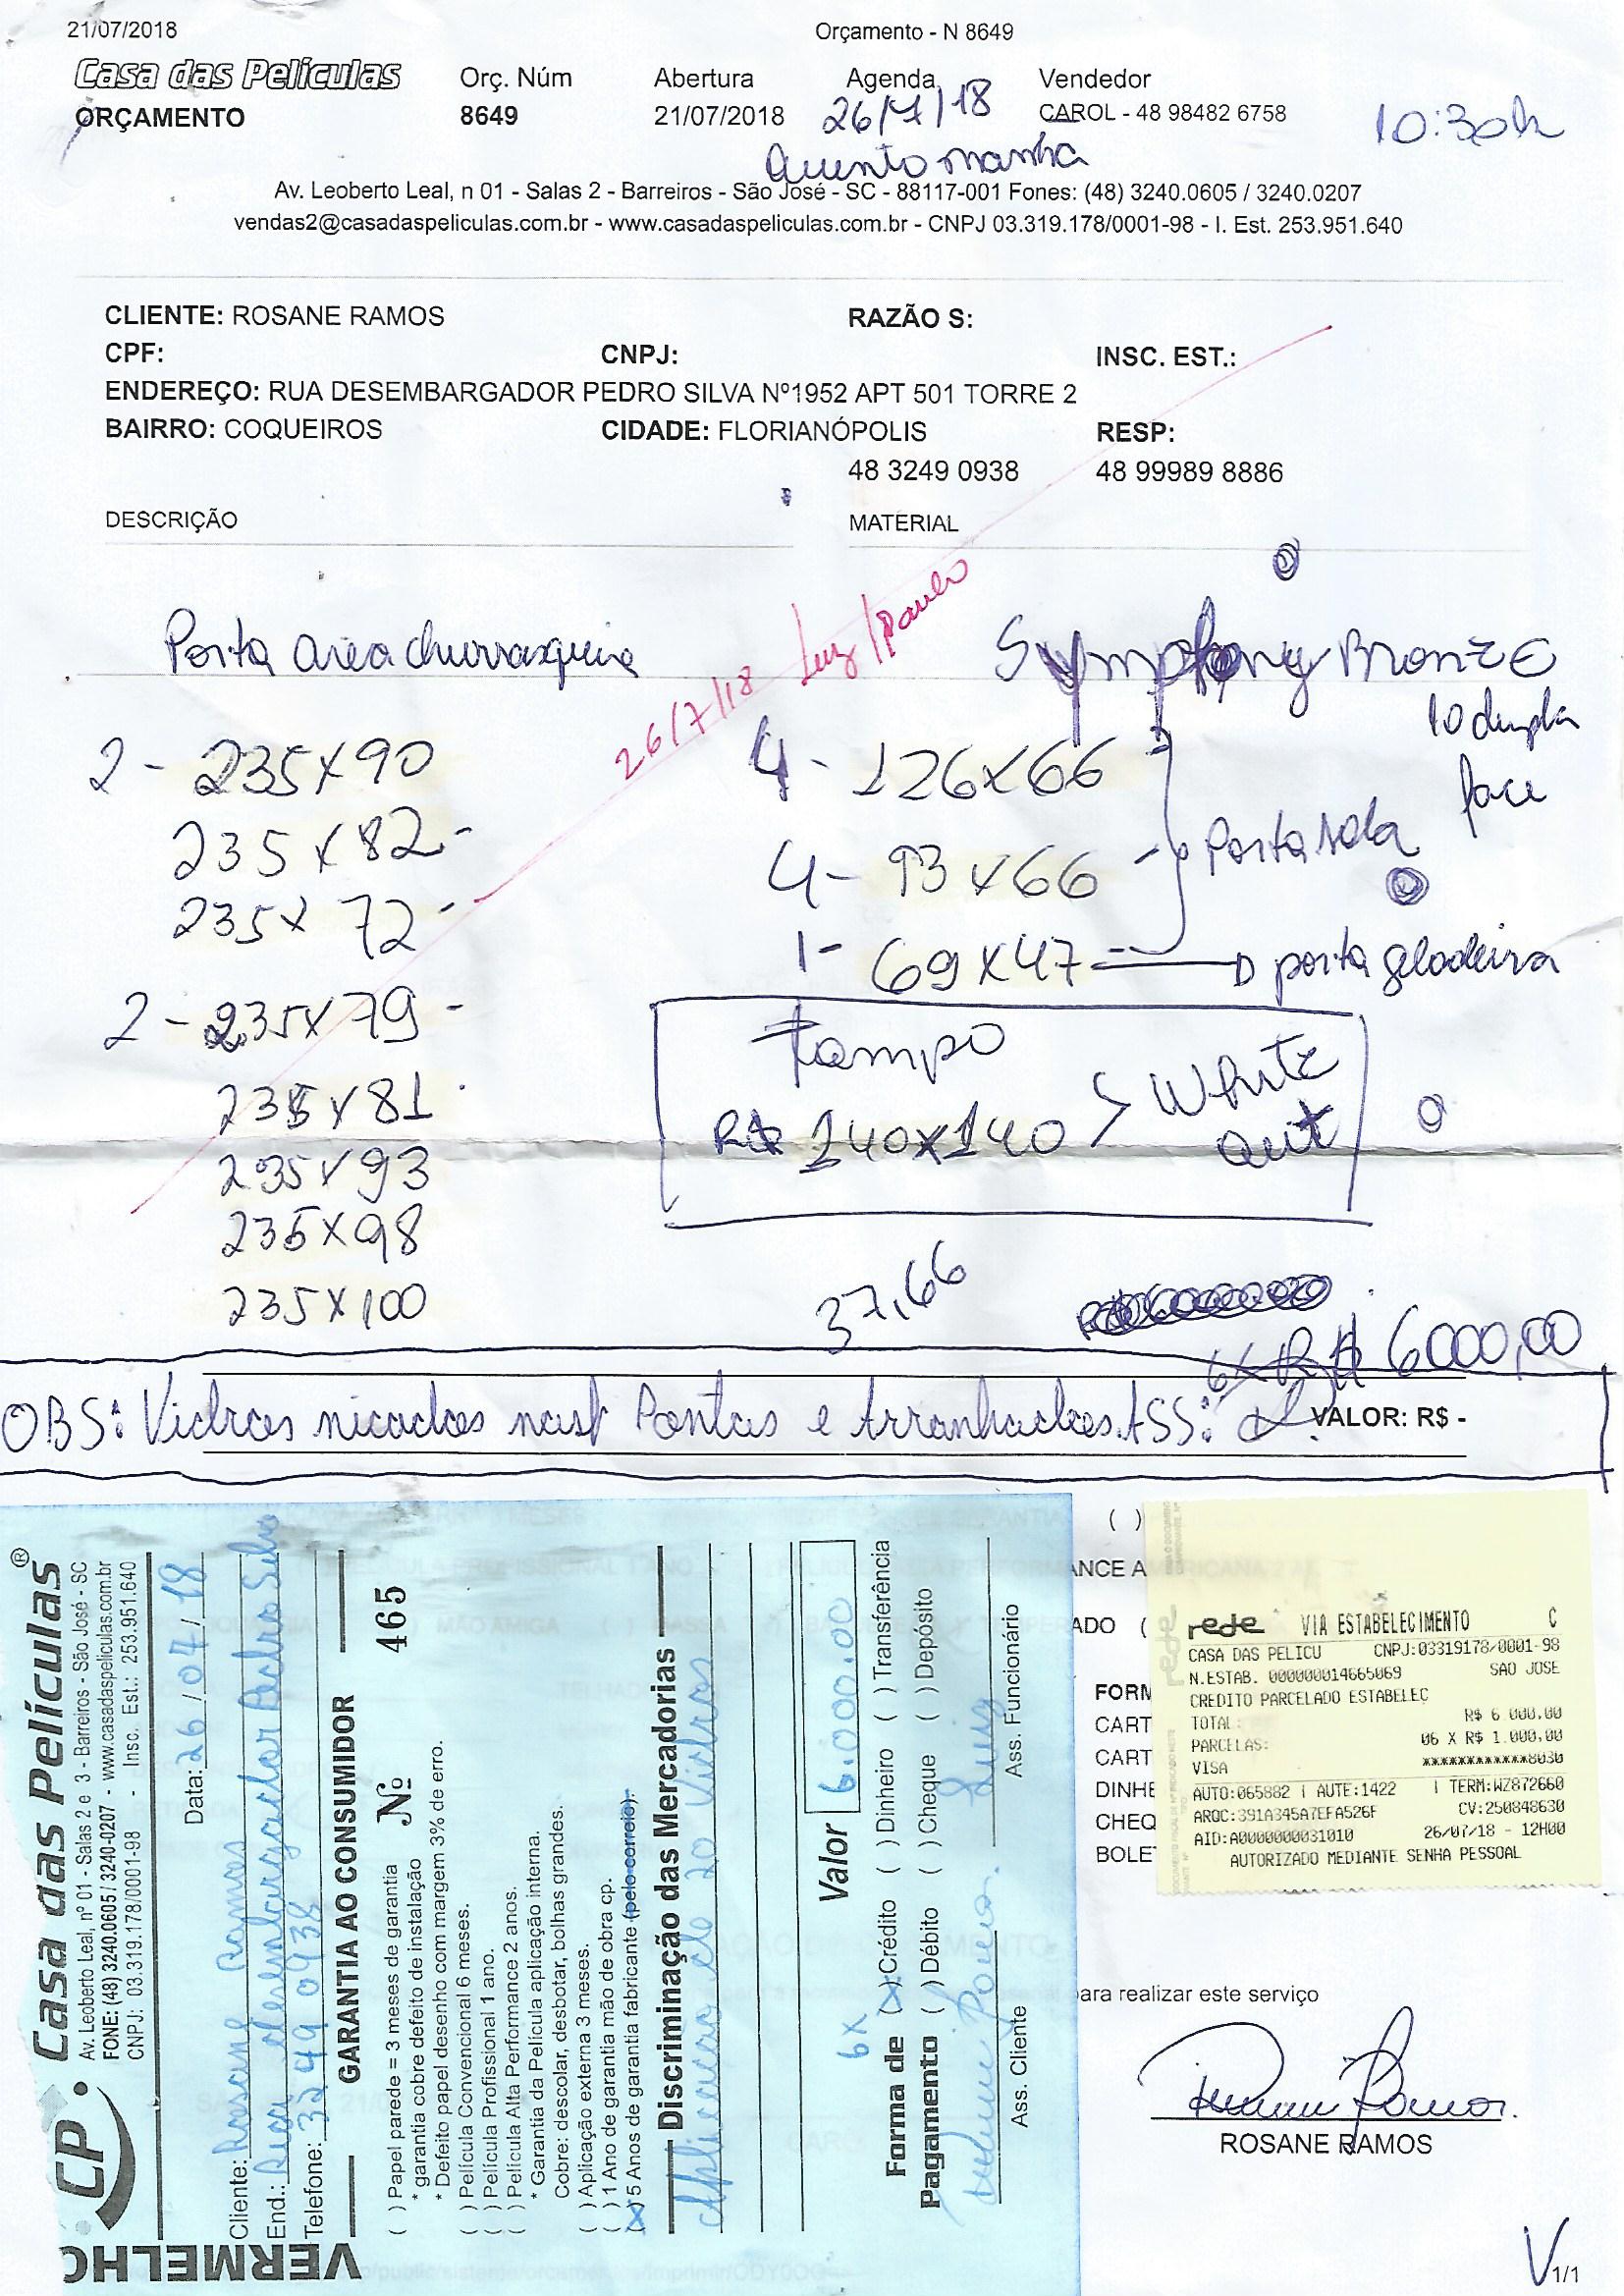 21/07/2018 Orçamento - N 8649
Casa das Películas Orç. Núm Abertura Agenda Vendedor
ORÇAMENTO 8649 21/07/2018 26/7/18 CAROL - 48 98482 6758 10:30h
manhã
Av. Leoberto Leal, n 01 - Salas 2 - Barreiros - São José - SC - 88117-001 Fones: (48) 3240.0605 / 3240.0207
vendas2@casadaspeliculas.com.br - www.casadaspeliculas.com.br - CNPJ 03.319.178/0001-98 - I. Est. 253.951.640
CLIENTE: ROSANE RAMOS RAZÃO S:
CPF: CNPJ: INSC. EST.:
ENDEREÇO: RUA DESEMBARGADOR PEDRO SILVA Nº1952 APT 501 TORRE 2
BAIRRO: COQUEIROS CIDADE: FLORIANÓPOLIS RESP:
48 3249 0938 48 99989 8886
DESCRIÇÃO MATERIAL
26/7/18 Luiz/Paulo
Porta area churrasqueira
2 - 235x90
235x82-
235x72-
2 - 235x79-
235x81
235x93
235x98
235x100
Symphony Bronze
10 dupla
face
4 - 126x66
4 - 93x66 - Porta sala
1 - 69x47 porta geladeira
Tampo
R$ 140x140 > White
out
37,66
6x R$ 6000,00
OBS: Vidros nicados nas Pontas e Arranhados. ASS: VALOR: R$ -
CP Casa das Películas®
Av. Leoberto Leal, nº 01 - Salas 2 e 3 - Barreiros - São José - SC
FONE: (48) 3240.0605 / 3240-0207 - www.casadaspeliculas.com.br
CNPJ: 03.319.178/0001-98 - Insc. Est.: 253.951.640
Data: 26/07/18
Cliente: Rosane Ramos
End.: Rua desembargador Pedro Silva
Telefone: 3249 0938
VERMELHO
GARANTIA AO CONSUMIDOR
Nº 465
( ) Papel parede = 3 meses de garantia
* garantia cobre defeito de instalação
* Defeito papel desenho com margem 3% de erro.
( ) Película Convencional 6 meses.
( ) Película Profissional 1 ano.
( ) Película Alta Performance 2 anos.
* Garantia da Película aplicação interna.
Cobre: descolar, desbotar, bolhas grandes.
( ) Aplicação externa 3 meses.
( ) 1 Ano de garantia mão de obra cp.
(x) 5 Anos de garantia fabricante (pelo correio).
Discriminação das Mercadorias
Aplicacao de 20 Vidros
Valor 6.000.00
6x
Forma de (x) Crédito ( ) Dinheiro ( ) Transferência
Pagamento ( ) Débito ( ) Cheque ( ) Depósito
Luiz
Ass. Cliente Ass. Funcionário
( )
ANCE A
ADO (
FORM
CART
CART
DINHE
CHEQ
BOLE
rede VIA ESTABELECIMENTO C
CASA DAS PELICU CNPJ:03319178/0001-98
N.ESTAB. 000000014665069 SAO JOSE
CREDITO PARCELADO ESTABELEC
TOTAL: R$ 6 000.00
PARCELAS: 06 X R$ 1.000.00
VISA ************8030
AUTO:065882 | AUTE:1422 | TERM:WZ872660
ARQC:391A345A7EFA526F CV:250848630
AID:A0000000031010 26/07/18 - 12H00
AUTORIZADO MEDIANTE SENHA PESSOAL
para realizar este serviço
ROSANE RAMOS
1/1